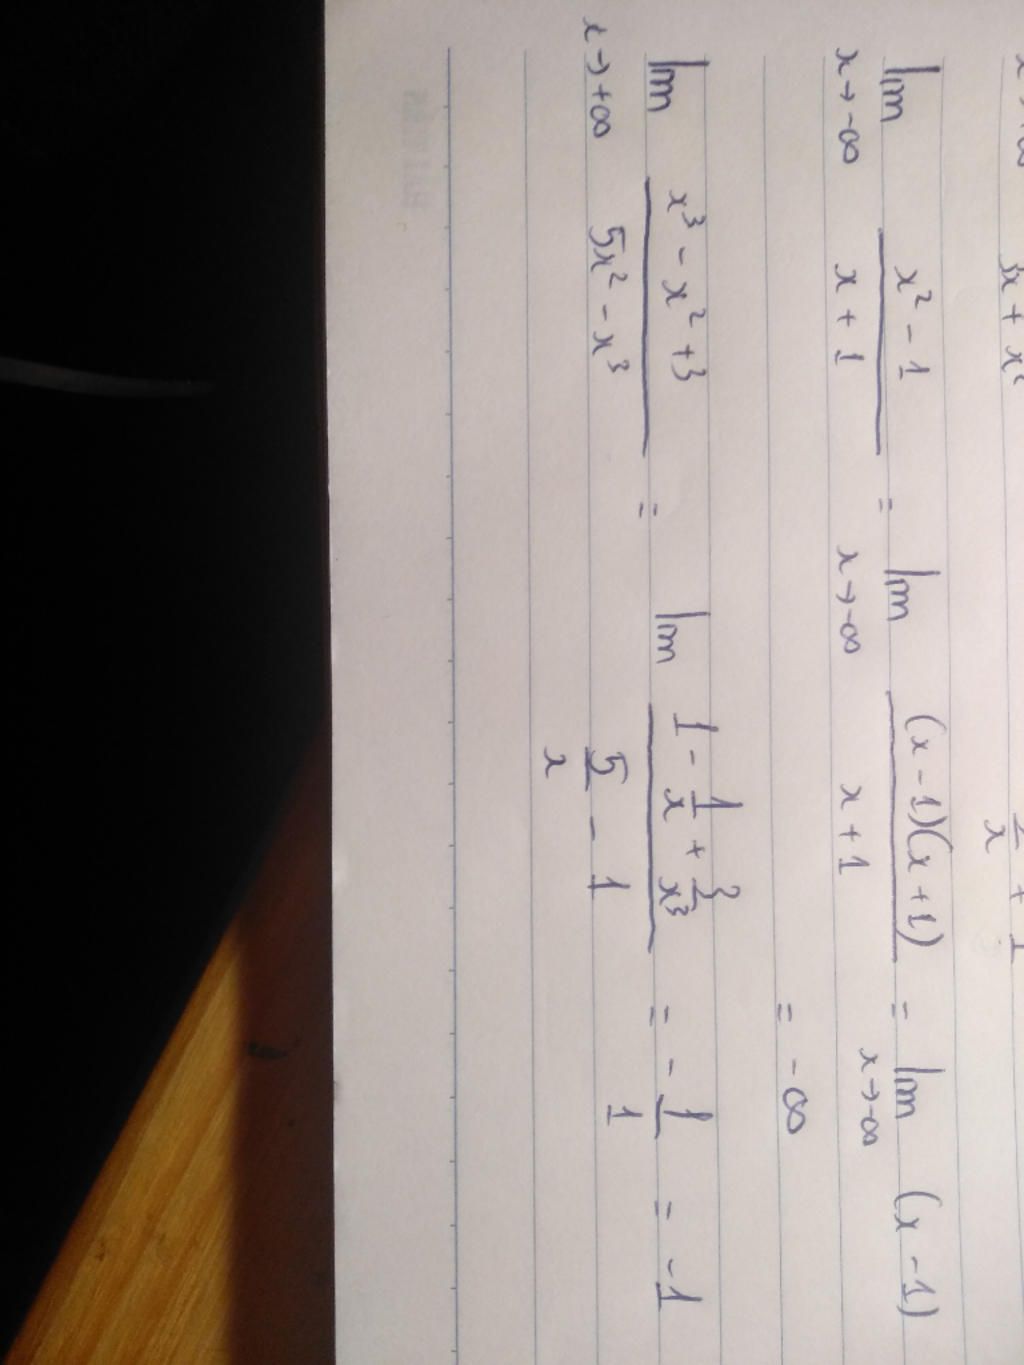 3x + x²
lim x→-∞ (x² - 1)/(x + 1) = lim x→-∞ ((x - 1)(x + 1))/(x + 1) = lim x→-∞ (x - 1)
= -∞
lim x→+∞ (x³ - x² + 3)/(5x² - x³) = lim (1 - 1/x + 3/x³)/(5/x - 1) = - 1/1 = -1